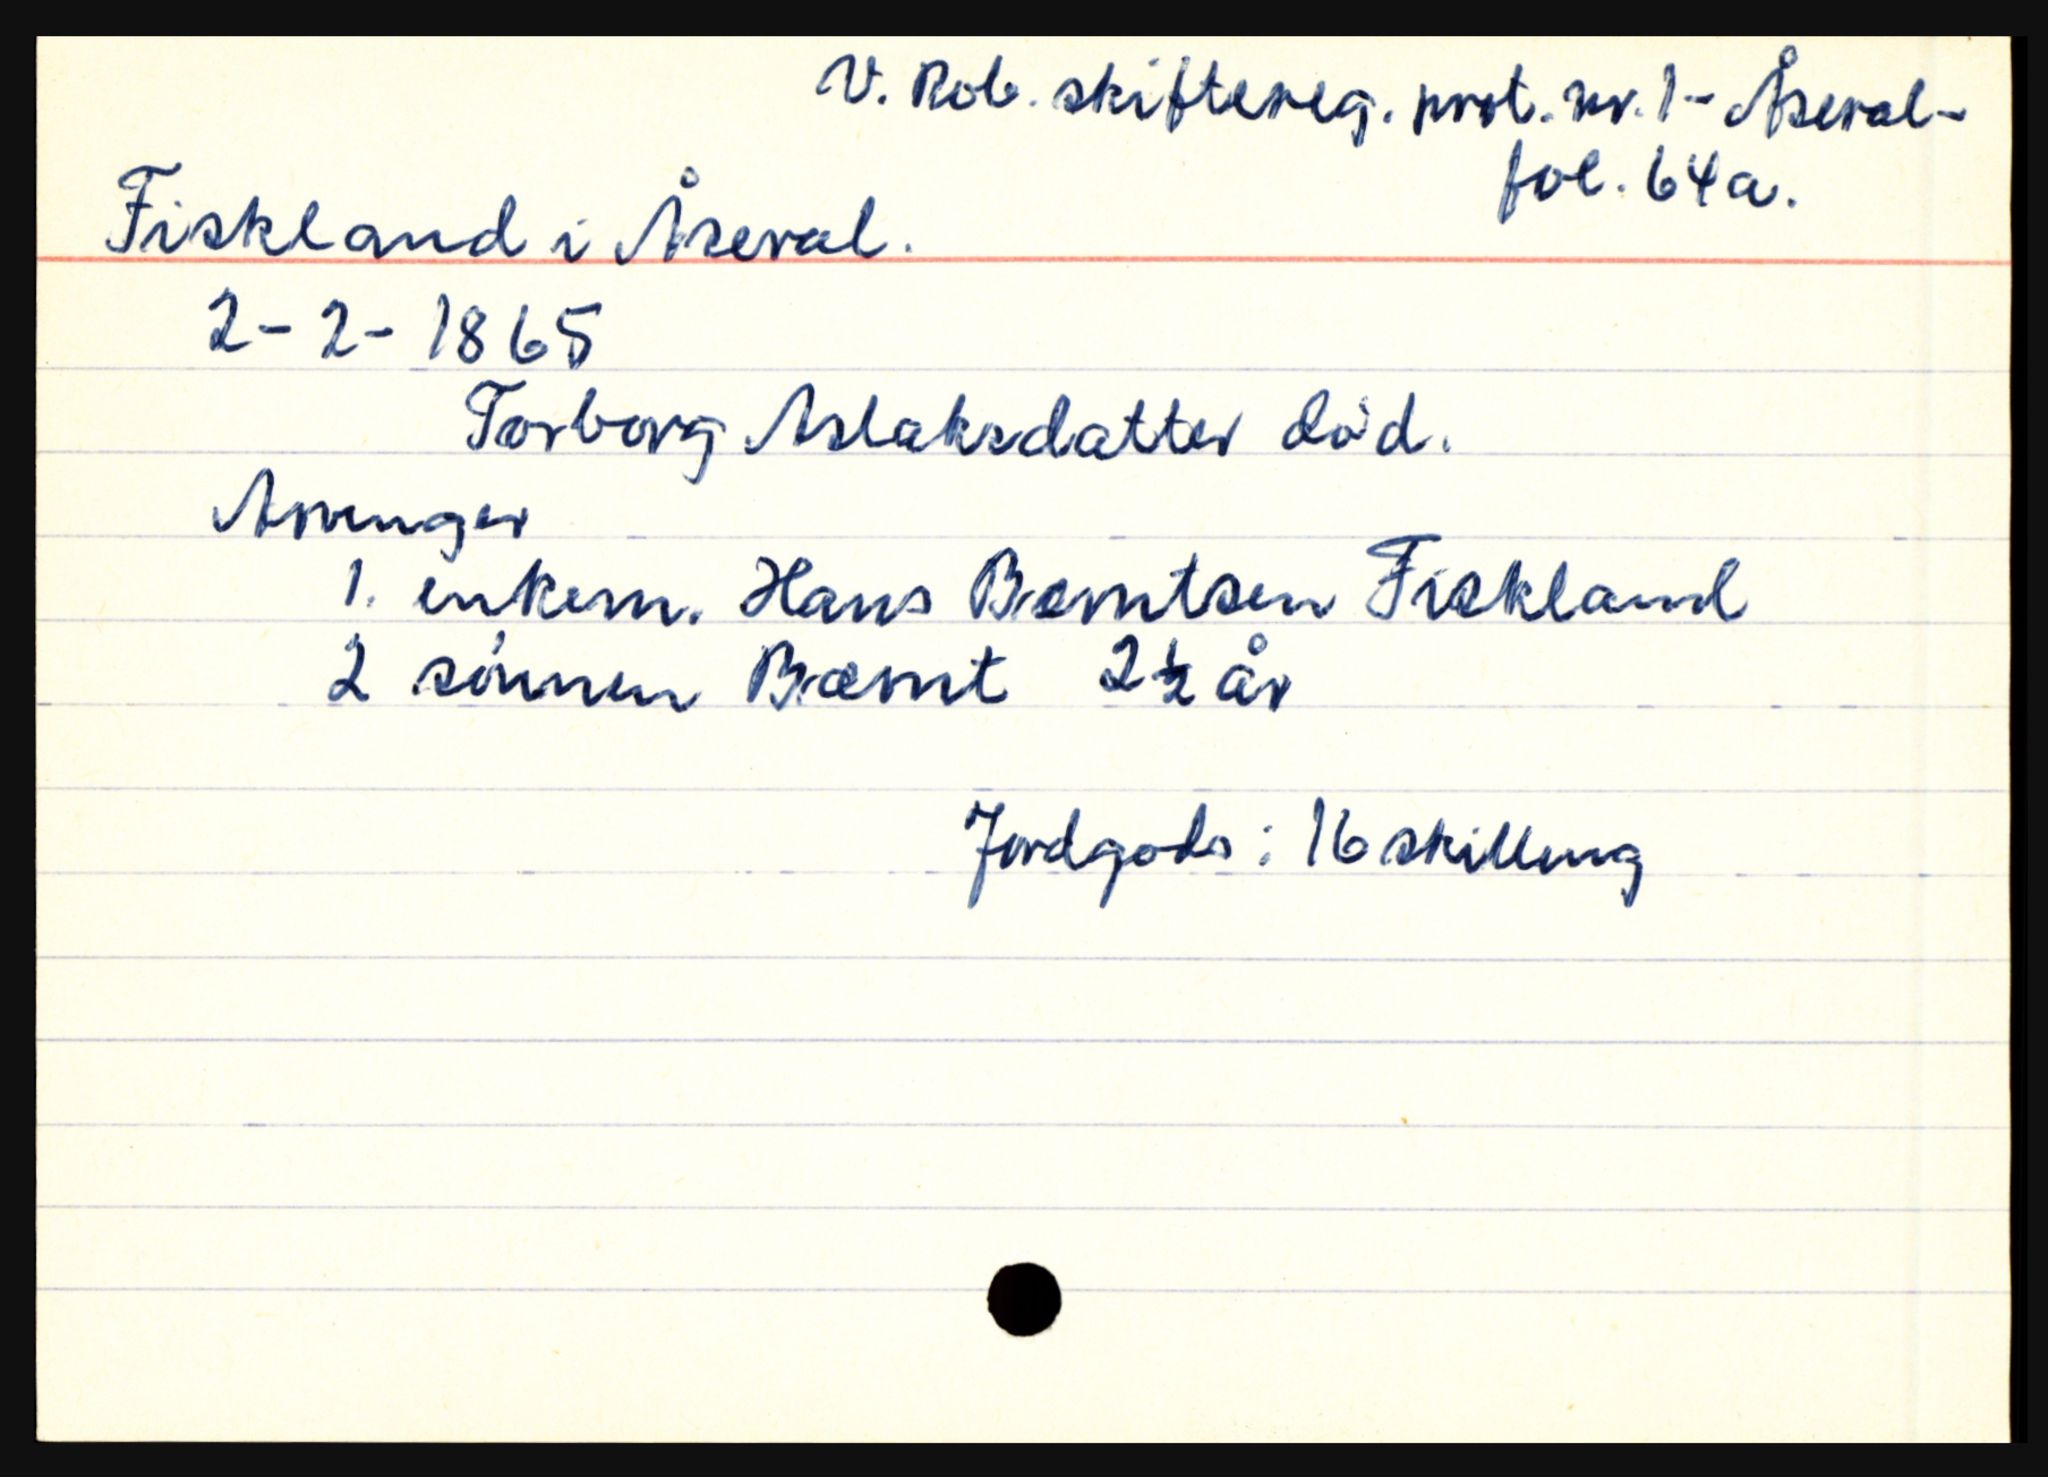 V. Rob. skiftereg. prot. nr. 1 - Åseral -
fol. 64a.
Fiskland i Åseral.
2-2-1865
Torborg Aslaksdatter død.
Arvinger
1. enkem. Hans Berntsen Fiskland
2 sønnen Bernt 2½ år
Jordgods: 16 skilling